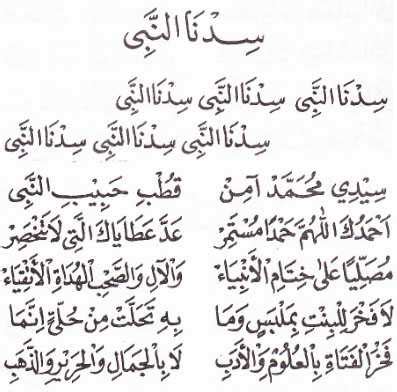 سِدْنَا النَّبِى
سِدْنَا النَّبِى سِدْنَا النَّبِى سِدْنَا النَّبِى
سِدْنَا النَّبِى سِدْنَا النَّبِى سِدْنَا النَّبِى
سِيْدِي مُحَمَّدْ آمِنْ قُطْبِ حَبِيْبِ النَّبِى
اَحْمَدُكَ اللّٰهُمَّ حَمْدًا مُسْتَمِرْ عَدَّ عَطَايَاكَ الَّتِى لَا تَنْحَصِرْ
مُصَلِّيًا عَلَى خِتَامِ الْأَنْبِيَاءْ وَالْآلِ وَالصَّحْبِ الْهُدَاةِ الْأَتْقِيَاءْ
لَا فَخْرَ لِلْبِنْتِ بِمَلْبَسٍ وَمَا بِهِ تَحَلَّتْ مِنْ حُلِيٍّ اِنَّمَا
فَخْرُ الْفَتَاةِ بِالْعُلُوْمِ وَالْأَدَبِ لَا بِالْجَمَالِ وَالْحَرِيْرِ وَالذَّهَبِ